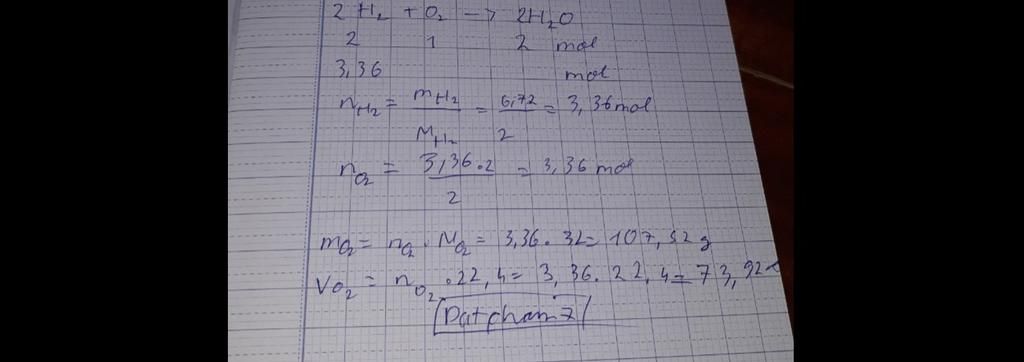 2 H₂ + O₂ -> 2H₂O
2 1 2 mol
3,36 mol
nH₂ = mH₂/MH₂ = 6,72/2 = 3,36 mol
nO₂ = 3,36.2/2 = 3,36 mol
mO₂ = nO₂ . MO₂ = 3,36. 32= 107,52 g
VO₂ = nO₂ .22,4= 3,36. 22,4= 73,92
Datcham7